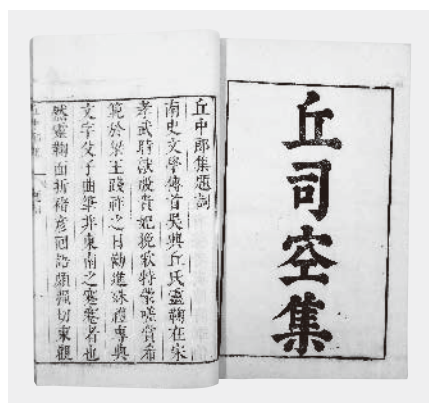 丘司空集
丘中郎集題詞
南史文學傳首吳興丘氏靈鞠在宋
孝武時獻殷貴妃挽歌特蒙嗟賞希
範於梁王踐祚之日勸進殊禮專典
文字父子曲筆并東南之蹇蹇者也
然靈鞠面折褚彥回語頗諷切東觀